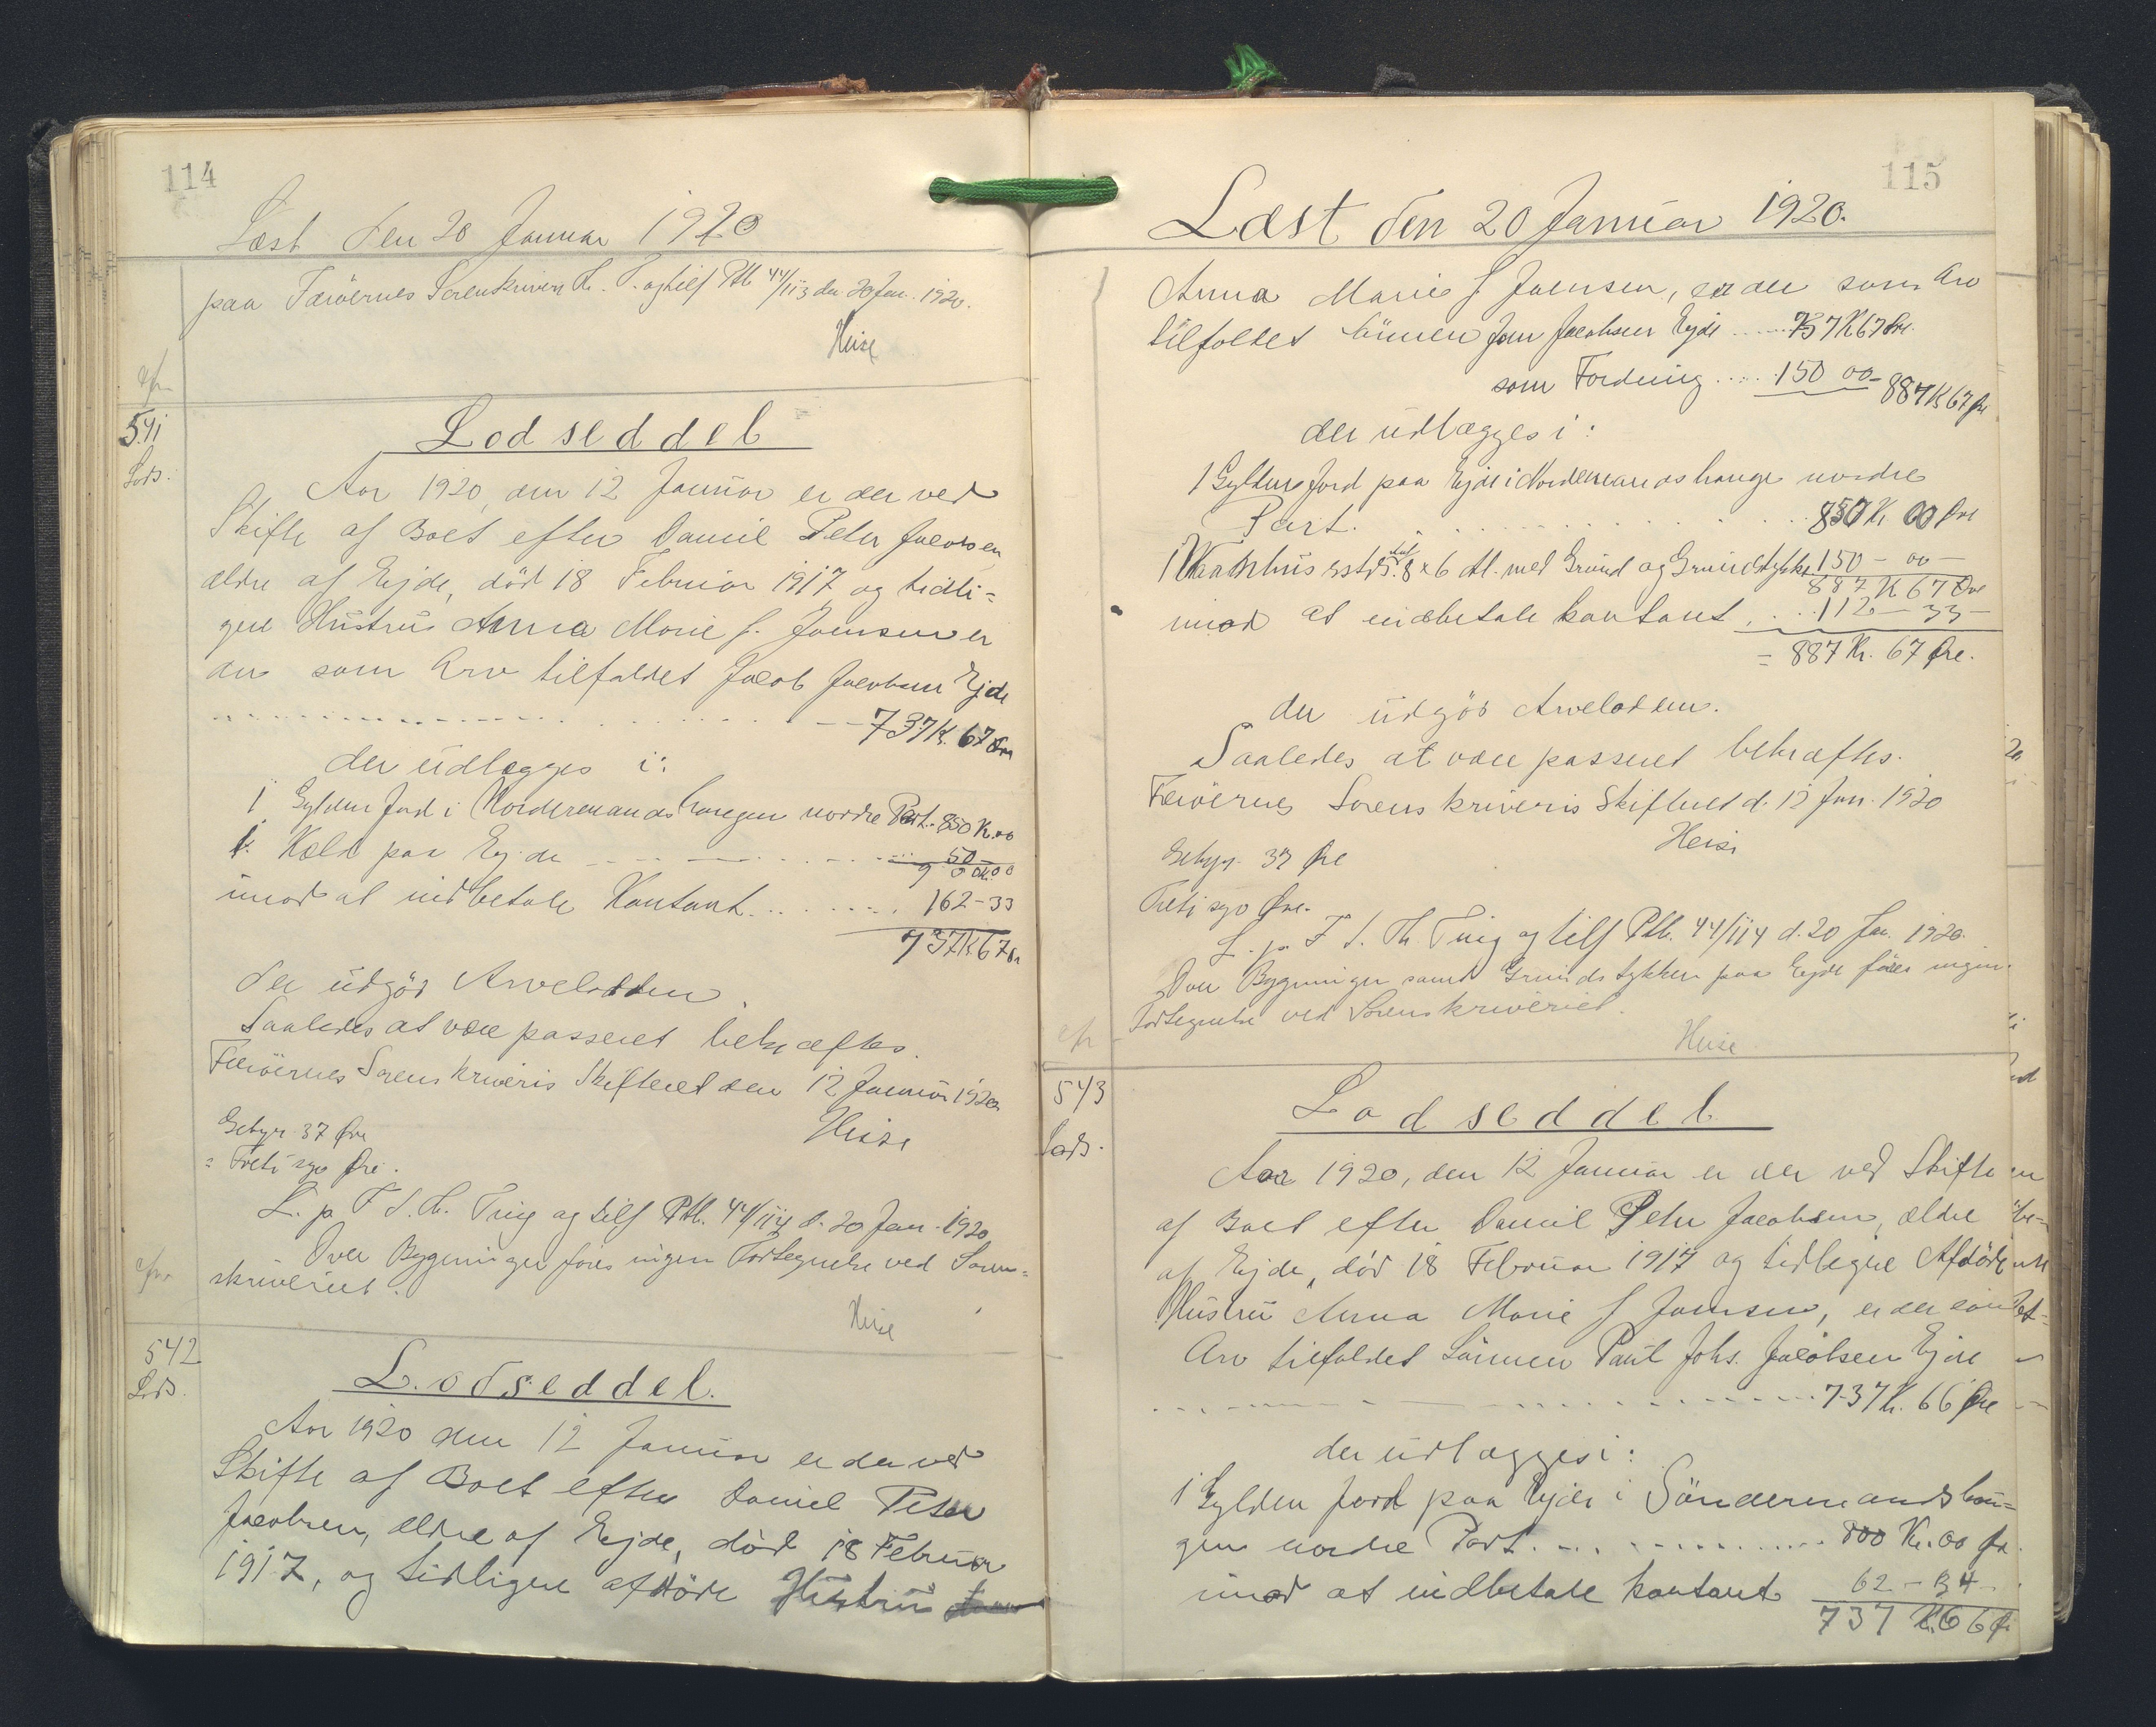 114
Læst den 20 Januar 1920
paa Færöernes Sorenskriveri L. T. og tilf Ptb 44/113 den 20 Jan. 1920.
Heise
cfr
541
Lods.
Lodseddel
Aar 1920, den 12 Januar er der ved
Skifte af Boet efter Daniel Peter Jacobsen
ældre af Ejde, död 18 Februar 1917 og tidli=
gere Hustru Anna Marie f. Joensen er
der som Arv tilfaldet Jacob Jacobsen Ejde
737 Kr. 67 Øre
der udlægges i:
1 Gylden Jord i Nordremandshaugen nordre Part. 850 K. 00
1. Hæld paa Ejde 50 -
900 K. 00
imod at indbetale Kontant. 162 - 33
737 K 67 Ør
der udgör Arvelodden.
Saaledes at være passeret bekræftes.
Færöernes Sorenskriveris Skifteret den 12 Januar 1920
Heise
Gebyr 37 Øre
= Treti syv Øre.
L. p. F. S. Th. Ting og tilf Ptb. 44/114 d. 20 Jan. 1920
Over Bygninger föres ingen Fortegnelse ved Soren=
skriveriet.
Heise
cfr
542
Lods.
Lodseddel.
Aar 1920 den 12 Januar er der ved
Skifte af Boet efter Daniel Peter
Jacobsen, ældre af Ejde, död 18 Februar
1917, og tidligere afdöde Hustru
115
Læst den 20 Januar 1920.
Anna Marie f Joensen, er der som Arv
tilfaldet Sönnen Joen Jacobsen Ejde ..... 737 K 67 Øre.
som Fordring .... 150 00 - 887 K 67 Øre
der udlægges i:
1 Gylden Jord paa Ejde i Nordremandshauge nordre
Part. 850 K 00 Øre
8 x 6 Al. med Grund og Grundstykke 150 - 00 -
887 K 67 Øre
imod at indbetale kontant 112 - 33 -
= 887 Kr. 67 Øre.
der udgör Arvelodden.
Saaledes at være passeret bekræftes.
Færöernes Sorenskriveris Skifteret d. 12 Jan. 1920
Heise
Gebyr. 37 Øre
Treti syv Øre.
L. p. F. S. Th. Ting og tilf Ptb. 44/114 d. 20 Jan. 1920.
Over Bygninger samt Grundstykker paa Ejde föres ingen
Fortegnelse ved Sorenskriveriet.
Heise
cfr
543
Lods.
Lodseddel
Aar 1920, den 12 Januar er der ved Skifte
af Boet efter Daniel Peter Jacobsen, ældre
af Ejde, död 18 Februar 1917 og tidligere Afdöde
Hustru Anna Marie f Joensen, er der som
Arv tilfaldet Sönnen Paul Johs. Jacobsen Ejde
737 K. 66 Øre
der udlægges i:
1 Gylden Jord paa Ejde i Söndermandshau=
gen nordre Part. 800 Kr. 00 Ør.
imod at indbetale kontant 62 - 34 -
737 K. 66 Ør